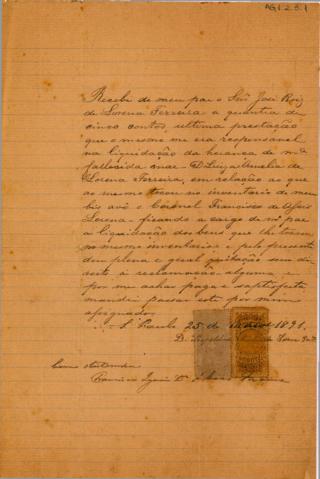 AG1.2.5.1
Recebi de meu pae o Snr José Roiz
de Lorena Ferreira a quantia de
cinco contos, ultima prestação
que o mesmo me era responsavel
na liquidação da herança de mª
fallecida mãe D. Luiza Amelia de
Lorena Ferreira, em relação ao que
ao mesmo tocou no inventario de meu
bis avô o Coronel Francisco de Assis
Lorena - ficando a cargo de meu pae
a liquidação dos bens que lhe tocou
no mesmo inventario; e pelo presente
dou plena e geral quitação sem di-
reito á reclamação alguma, e
por me achar paga e satisfeita
mandei passar este por mim
assignado
S. Paulo 25 de 1891.
D.
Como
Francisco